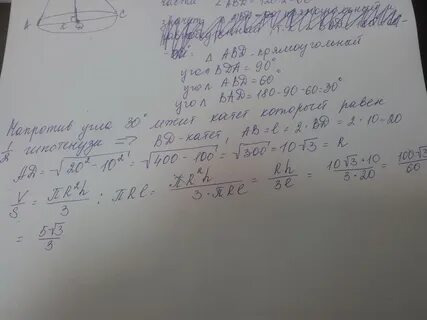 A
K
C
части
△ ABD - прямоугольный
угол BDA = 90°
угол ABD = 60°
угол BAD = 180-90-60 = 30°
Напротив угла 30° лежит катет который равен
1/2 гипотенуза => BD - катет, AB = l = 2·BD = 2·10 = 20
AD = √20² - 10² = √400 - 100 = √300 = 10√3 = R
V/S = πR²h/3 : πRl = πR²h/3·πRl = Rh/3l = 10√3·10/3·20 = 100√3/60
= 5√3/3